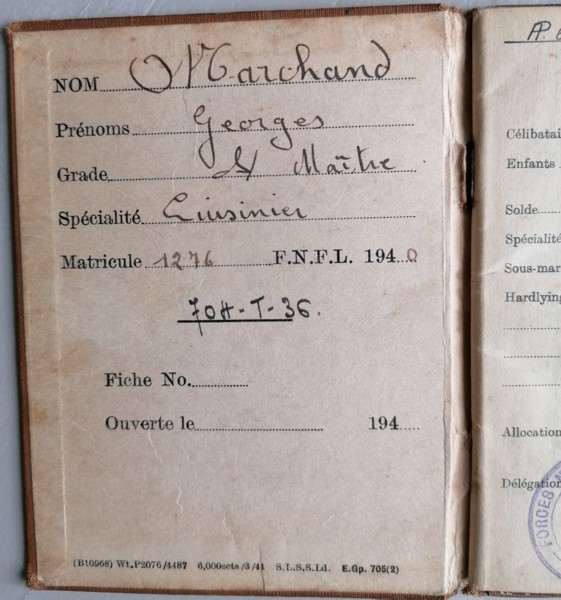 NOM Marchand
Prénoms Georges
Grade Maître
Spécialité Cuisinier
Matricule 1276 F.N.F.L. 1940
704-T-36.
Fiche No.
Ouverte le 194
(Bt0968) Wt.P2076/4487 6,000sets/3/41 S.L.S.S.Ld. E.Gp. 705(2)
Célibatai
Enfants
Solde
Spécialité
Sous-mar
Hardlying
Allocation
Délégation
FORCES